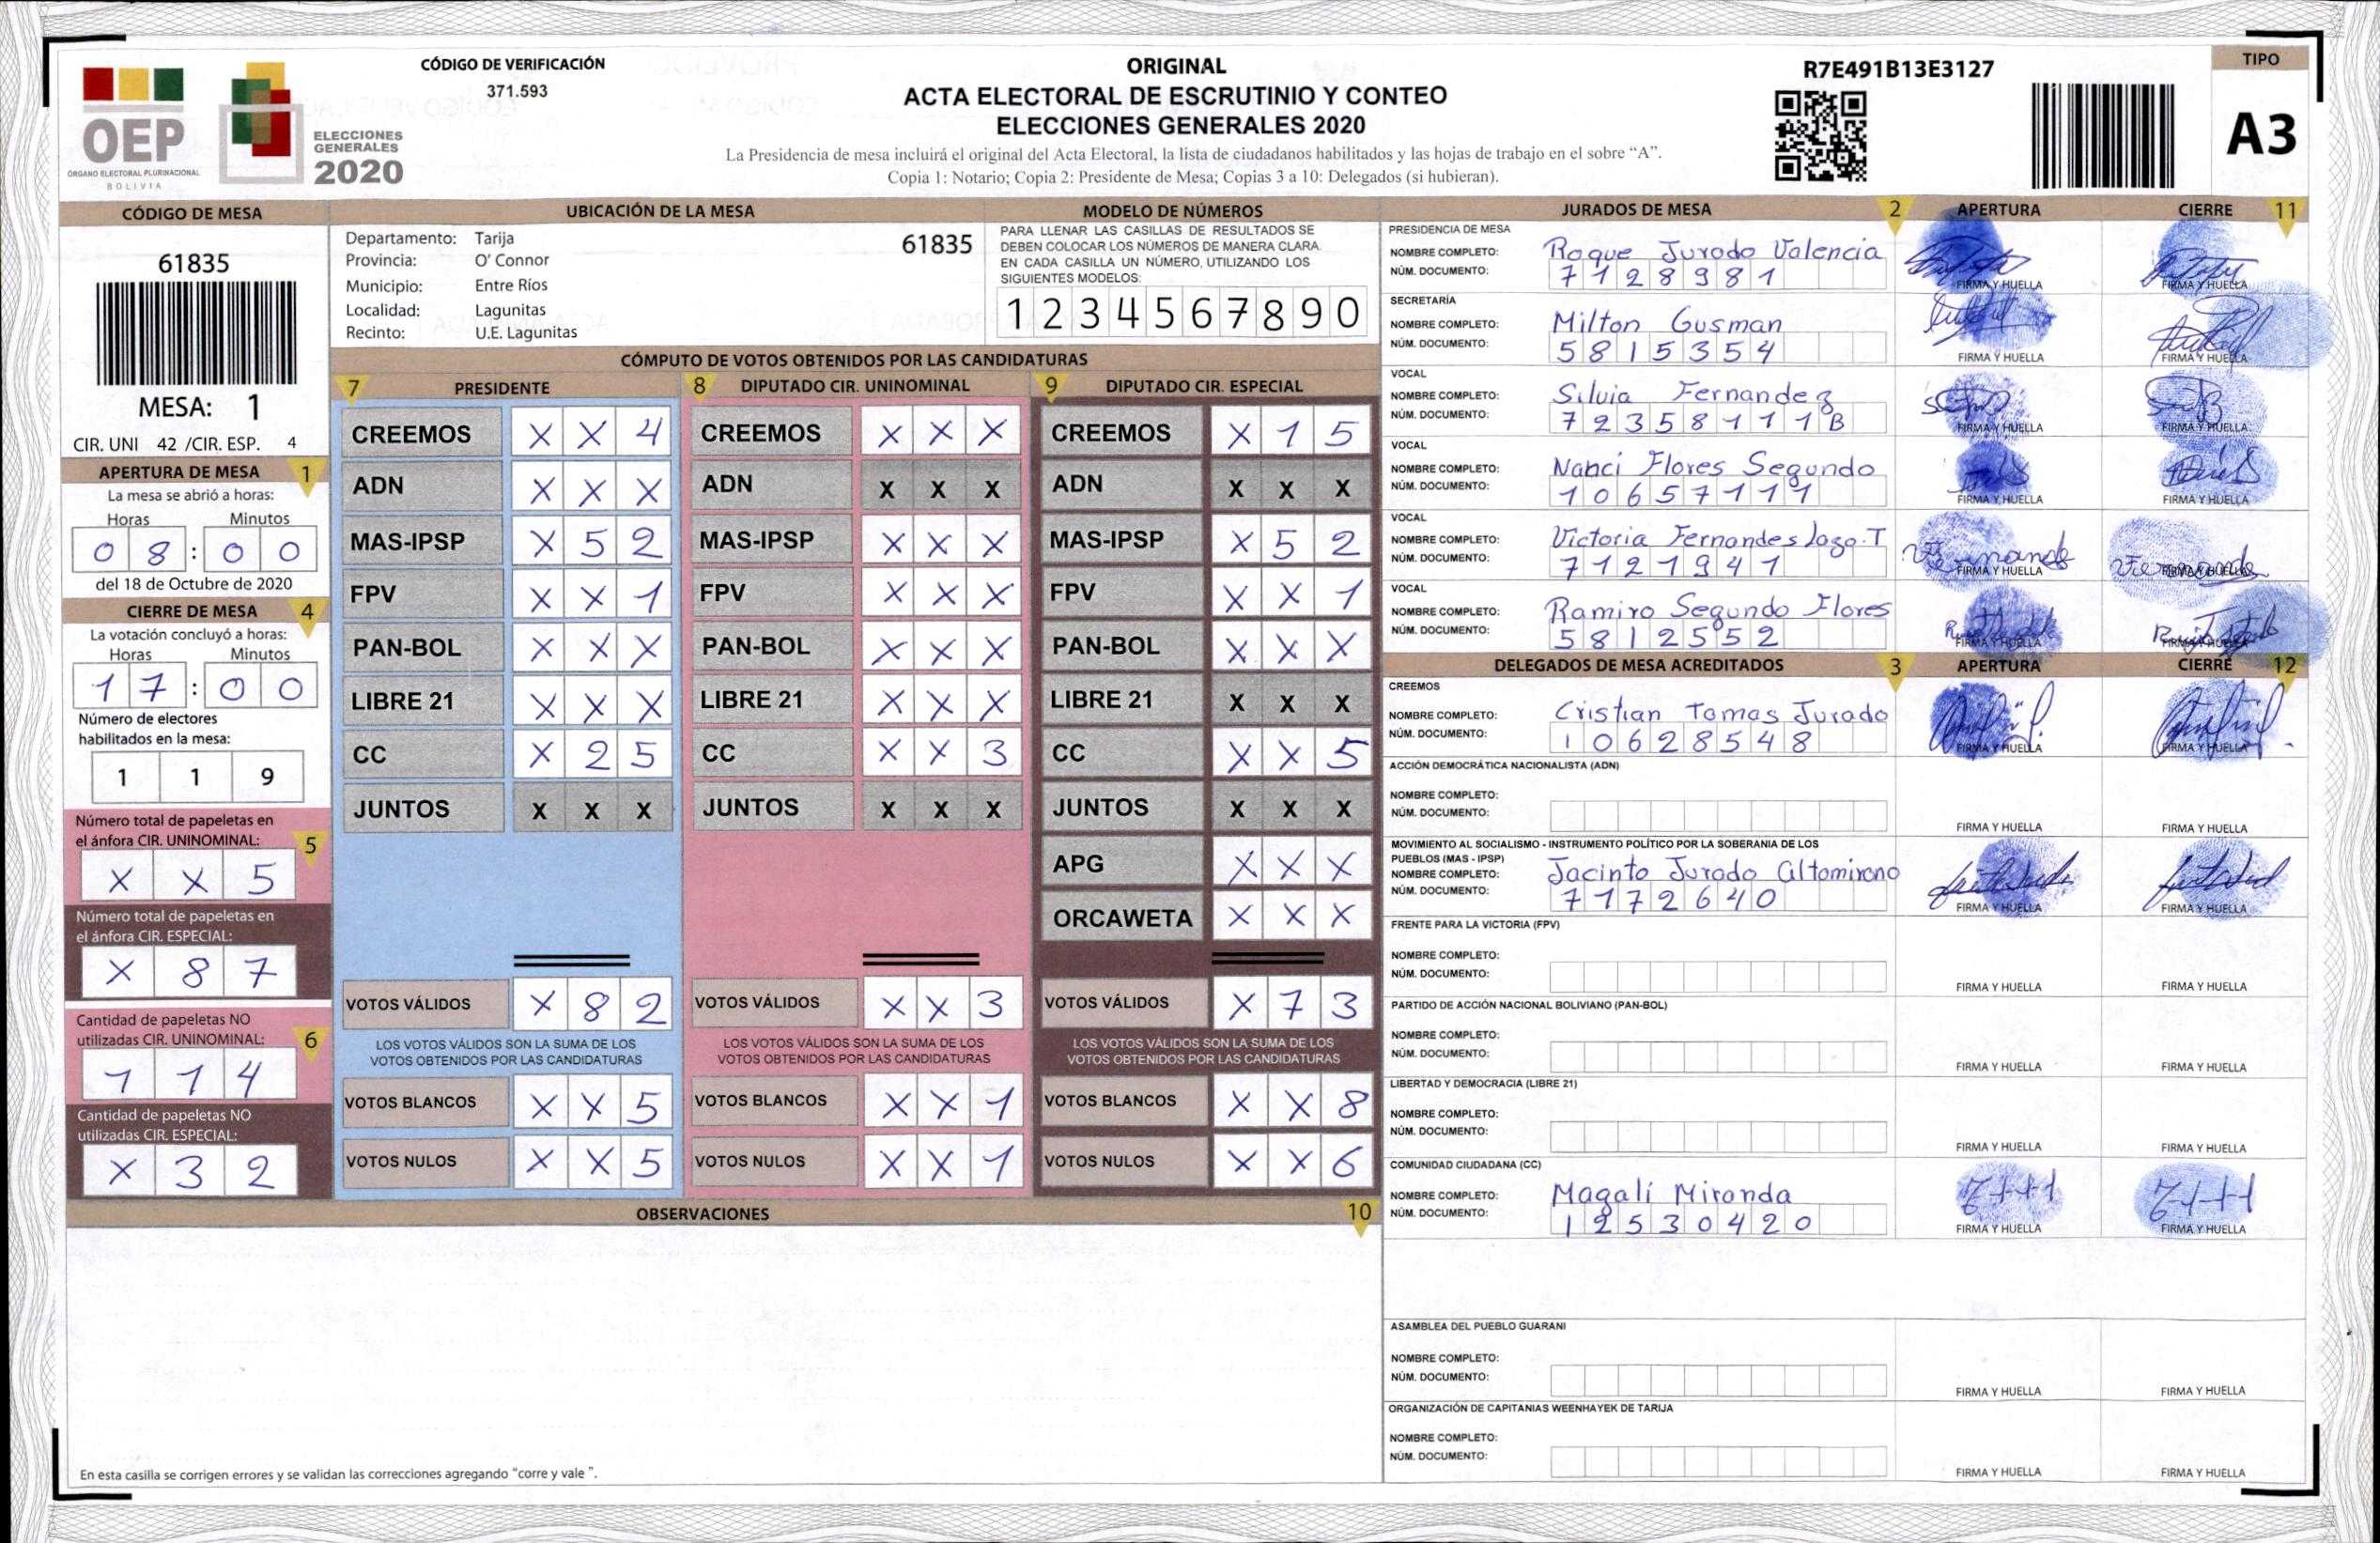 OEP
ÓRGANO ELECTORAL PLURINACIONAL
BOLIVIA
ELECCIONES
GENERALES
2020
CÓDIGO DE VERIFICACIÓN
371.593
ORIGINAL
ACTA ELECTORAL DE ESCRUTINIO Y CONTEO
ELECCIONES GENERALES 2020
La Presidencia de mesa incluirá el original del Acta Electoral, la lista de ciudadanos habilitados y las hojas de trabajo en el sobre “A”.
Copia 1: Notario; Copia 2: Presidente de Mesa; Copias 3 a 10: Delegados (si hubieran).
R7E491B13E3127
TIPO
A3
CÓDIGO DE MESA
61835
MESA: 1
CIR. UNI 42 /CIR. ESP. 4
APERTURA DE MESA 1
La mesa se abrió a horas:
Horas Minutos
0 8 : 0 0
del 18 de Octubre de 2020
CIERRE DE MESA 4
La votación concluyó a horas:
Horas Minutos
1 7 : 0 0
Número de electores
habilitados en la mesa:
1 1 9
Número total de papeletas en
el ánfora CIR. UNINOMINAL: 5
X X 5
Número total de papeletas en
el ánfora CIR. ESPECIAL:
X 8 7
Cantidad de papeletas NO
utilizadas CIR. UNINOMINAL: 6
1 1 4
Cantidad de papeletas NO
utilizadas CIR. ESPECIAL:
X 3 2
UBICACIÓN DE LA MESA
Departamento: Tarija 61835
Provincia: O' Connor
Municipio: Entre Ríos
Localidad: Lagunitas
Recinto: U.E. Lagunitas
MODELO DE NÚMEROS
PARA LLENAR LAS CASILLAS DE RESULTADOS SE
DEBEN COLOCAR LOS NÚMEROS DE MANERA CLARA.
EN CADA CASILLA UN NÚMERO, UTILIZANDO LOS
SIGUIENTES MODELOS:
1 2 3 4 5 6 7 8 9 0
CÓMPUTO DE VOTOS OBTENIDOS POR LAS CANDIDATURAS
7 PRESIDENTE
CREEMOS X X 4
ADN X X X
MAS-IPSP X 5 2
FPV X X 1
PAN-BOL X X X
LIBRE 21 X X X
CC X 2 5
JUNTOS X X X
VOTOS VÁLIDOS X 8 2
LOS VOTOS VÁLIDOS SON LA SUMA DE LOS
VOTOS OBTENIDOS POR LAS CANDIDATURAS
VOTOS BLANCOS X X 5
VOTOS NULOS X X 5
8 DIPUTADO CIR. UNINOMINAL
CREEMOS X X X
ADN X X X
MAS-IPSP X X X
FPV X X X
PAN-BOL X X X
LIBRE 21 X X X
CC X X 3
JUNTOS X X X
VOTOS VÁLIDOS X X 3
LOS VOTOS VÁLIDOS SON LA SUMA DE LOS
VOTOS OBTENIDOS POR LAS CANDIDATURAS
VOTOS BLANCOS X X 1
VOTOS NULOS X X 1
9 DIPUTADO CIR. ESPECIAL
CREEMOS X 1 5
ADN X X X
MAS-IPSP X 5 2
FPV X X 1
PAN-BOL X X X
LIBRE 21 X X X
CC X X 5
JUNTOS X X X
APG X X X
ORCAWETA X X X
VOTOS VÁLIDOS X 7 3
LOS VOTOS VÁLIDOS SON LA SUMA DE LOS
VOTOS OBTENIDOS POR LAS CANDIDATURAS
VOTOS BLANCOS X X 8
VOTOS NULOS X X 6
OBSERVACIONES 10
En esta casilla se corrigen errores y se validan las correcciones agregando “corre y vale ”.
JURADOS DE MESA 2 APERTURA CIERRE 11
PRESIDENCIA DE MESA
NOMBRE COMPLETO: Roque Jurado Valencia
NÚM. DOCUMENTO: 7 1 2 8 9 8 1
FIRMA Y HUELLA FIRMA Y HUELLA
SECRETARÍA
NOMBRE COMPLETO: Milton Gusman
NÚM. DOCUMENTO: 5 8 1 5 3 5 4
FIRMA Y HUELLA FIRMA Y HUELLA
VOCAL
NOMBRE COMPLETO: Silvia Fernandez
NÚM. DOCUMENTO: 7 2 3 5 8 1 1 1 B
FIRMA Y HUELLA FIRMA Y HUELLA
VOCAL
NOMBRE COMPLETO: Nanci Flores Segundo
NÚM. DOCUMENTO: 1 0 6 5 7 1 1 1
FIRMA Y HUELLA FIRMA Y HUELLA
VOCAL
NOMBRE COMPLETO: Victoria Fernandes Lozo.T
NÚM. DOCUMENTO: 7 1 2 1 9 4 1
FIRMA Y HUELLA FIRMA Y HUELLA
VOCAL
NOMBRE COMPLETO: Ramiro Segundo Flores
NÚM. DOCUMENTO: 5 8 1 2 5 5 2
FIRMA Y HUELLA FIRMA Y HUELLA
DELEGADOS DE MESA ACREDITADOS 3 APERTURA CIERRE 12
CREEMOS
NOMBRE COMPLETO: Cristian Tomas Jurado
NÚM. DOCUMENTO: 1 0 6 2 8 5 4 8
FIRMA Y HUELLA FIRMA Y HUELLA
ACCIÓN DEMOCRÁTICA NACIONALISTA (ADN)
NOMBRE COMPLETO:
NÚM. DOCUMENTO:
FIRMA Y HUELLA FIRMA Y HUELLA
MOVIMIENTO AL SOCIALISMO - INSTRUMENTO POLÍTICO POR LA SOBERANIA DE LOS
PUEBLOS (MAS - IPSP)
NOMBRE COMPLETO: Jacinto Jurado Altamirano
NÚM. DOCUMENTO: 7 1 7 2 6 4 0
FIRMA Y HUELLA FIRMA Y HUELLA
FRENTE PARA LA VICTORIA (FPV)
NOMBRE COMPLETO:
NÚM. DOCUMENTO:
FIRMA Y HUELLA FIRMA Y HUELLA
PARTIDO DE ACCIÓN NACIONAL BOLIVIANO (PAN-BOL)
NOMBRE COMPLETO:
NÚM. DOCUMENTO:
FIRMA Y HUELLA FIRMA Y HUELLA
LIBERTAD Y DEMOCRACIA (LIBRE 21)
NOMBRE COMPLETO:
NÚM. DOCUMENTO:
FIRMA Y HUELLA FIRMA Y HUELLA
COMUNIDAD CIUDADANA (CC)
NOMBRE COMPLETO: Magali Miranda
NÚM. DOCUMENTO: 1 2 5 3 0 4 2 0
FIRMA Y HUELLA FIRMA Y HUELLA
ASAMBLEA DEL PUEBLO GUARANI
NOMBRE COMPLETO:
NÚM. DOCUMENTO:
FIRMA Y HUELLA FIRMA Y HUELLA
ORGANIZACIÓN DE CAPITANIAS WEENHAYEK DE TARIJA
NOMBRE COMPLETO:
NÚM. DOCUMENTO:
FIRMA Y HUELLA FIRMA Y HUELLA